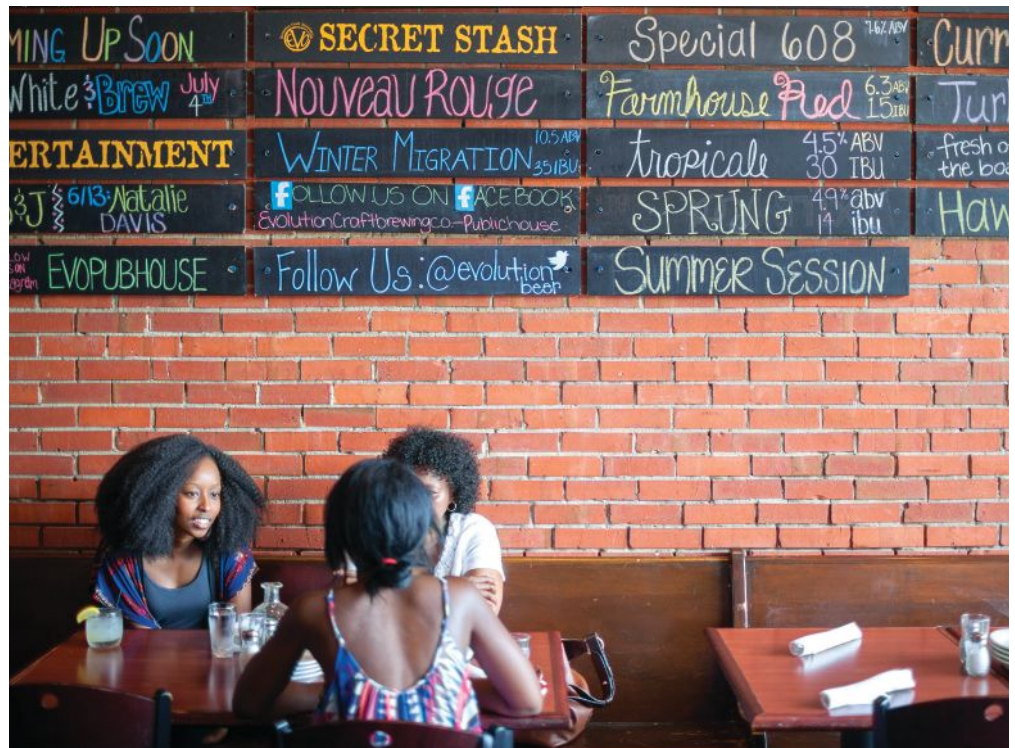 MING UP SOON
White & Brew July 4th
ERTAINMENT
& J 6/13: Natalie
DAVIS
EVOPUBHOUSE
EVO SECRET STASH
NOUVEAU ROUGE
WINTER MIGRATION 10.5 ABV
35 IBU
FOLLOW US ON FACEBOOK
EvolutionCraftbrewingco.—Publichouse
Follow Us: @evolution
beer
Special 608 7.6% ABV
Farmhouse Red 6.3 ABV
15 IBU
tropicale 4.5% ABV
30 IBU
SPRUNG 4.9% abv
14 ibu
SUMMER SESSION
Curr
Tur
fresh o
the boa
Haw